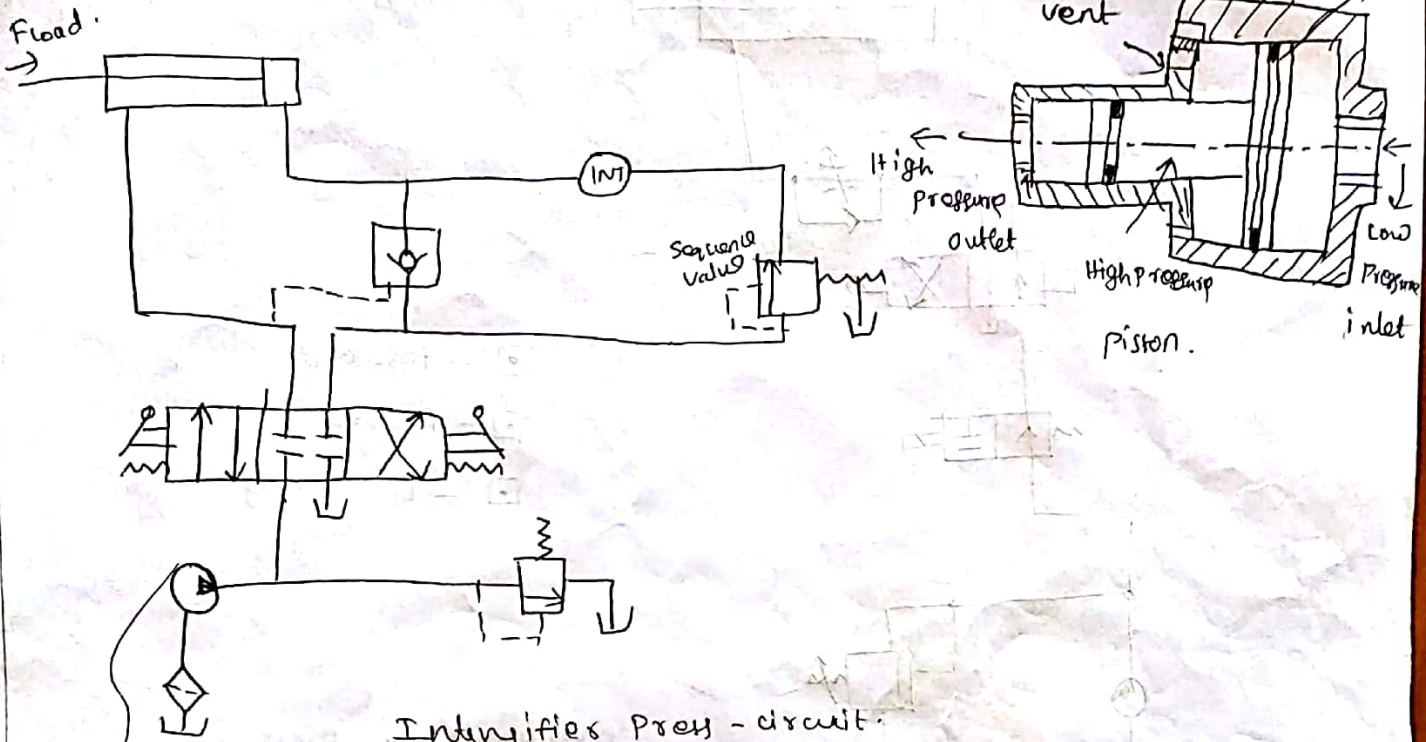 Fload.
INT
Sequence
Valve
vent
High
pressure
outlet
High pressure
piston.
Low
Pressure
inlet
Intensifier Press - circuit.